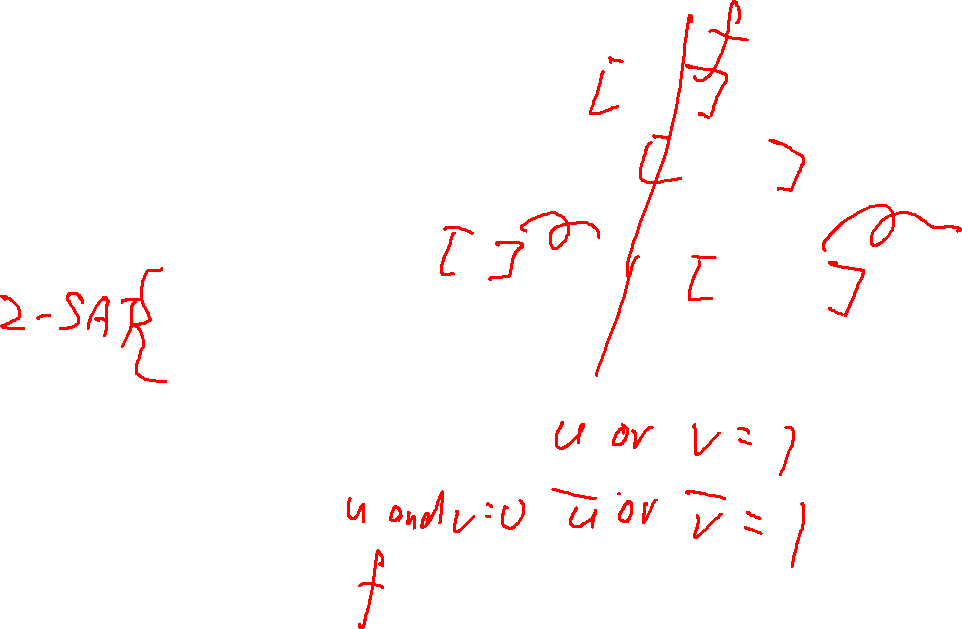 f
[ ]
[ ]
[ ]
[ ]
2-SAT {
u or v = 1
u and v = 0 u̅ or v̅ = 1
f